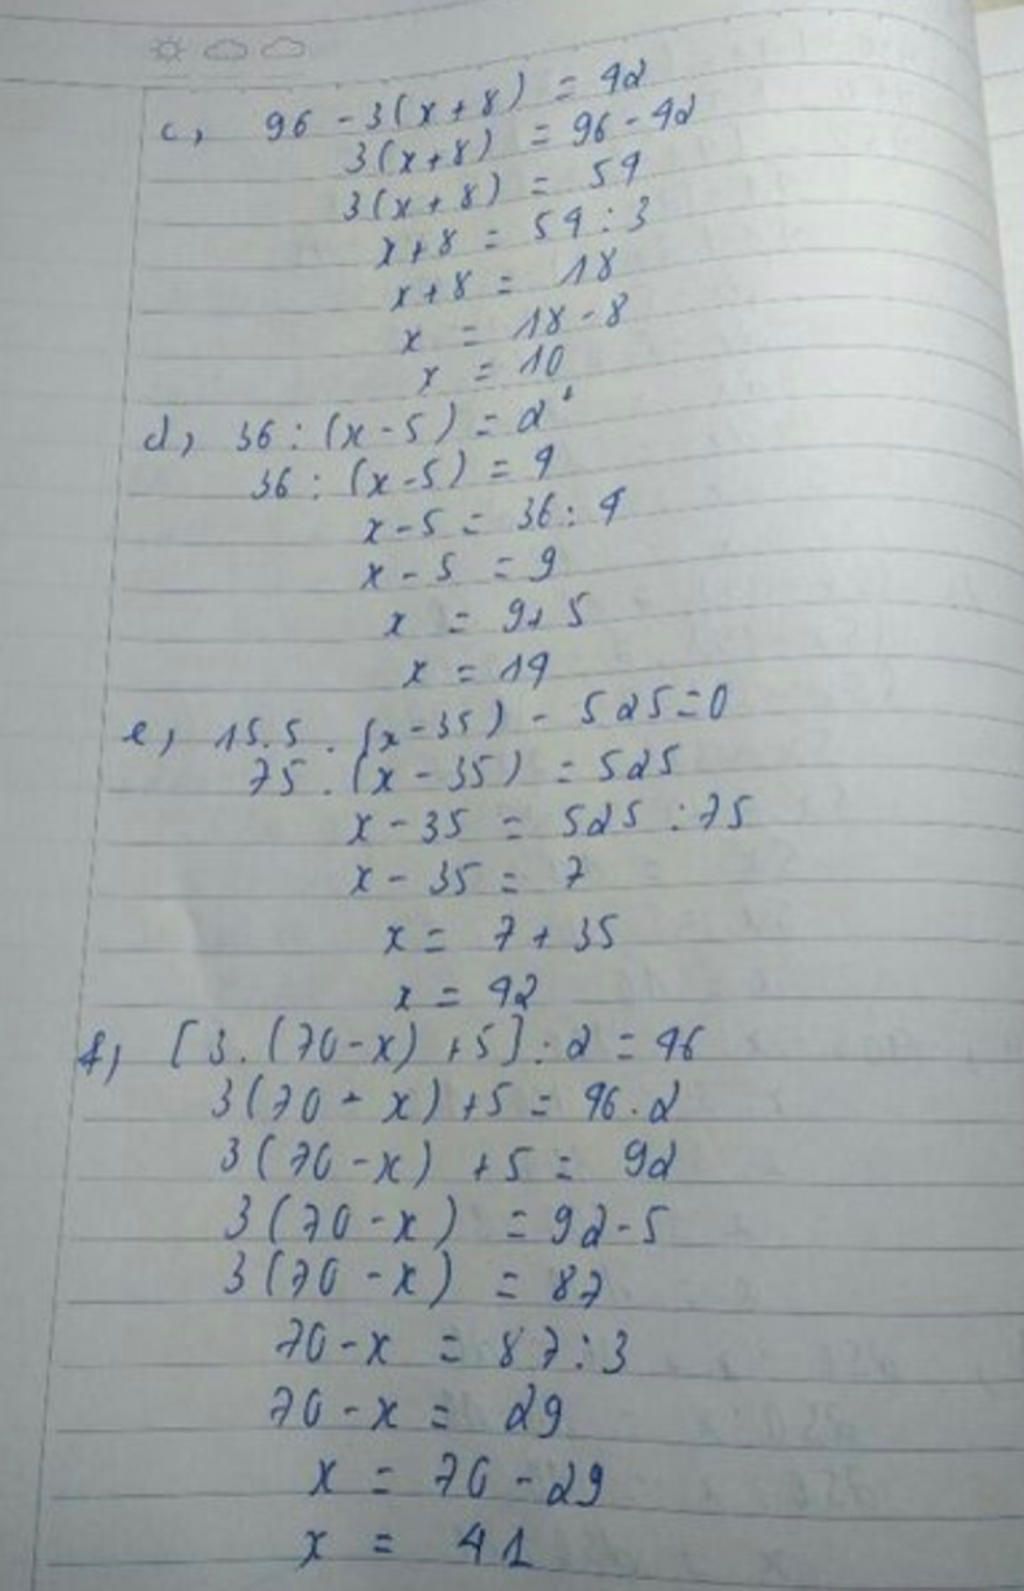 c, 96 - 3(x + 8) = 42
3(x+8) = 96 - 42
3(x + 8) = 54
x + 8 = 54 : 3
x + 8 = 18
x = 18 - 8
x = 10
d, 36 : (x - 5) = 2²
36 : (x - 5) = 4
x - 5 = 36 : 4
x - 5 = 9
x = 9 + 5
x = 14
e, 15.5 . (x - 35) - 525 = 0
75 . (x - 35) = 525
x - 35 = 525 : 75
x - 35 = 7
x = 7 + 35
x = 42
f, [3.(70 - x) + 5] : 2 = 46
3(70 - x) + 5 = 46 . 2
3(70 - x) + 5 = 92
3(70 - x) = 92 - 5
3(70 - x) = 87
70 - x = 87 : 3
70 - x = 29
x = 70 - 29
x = 41